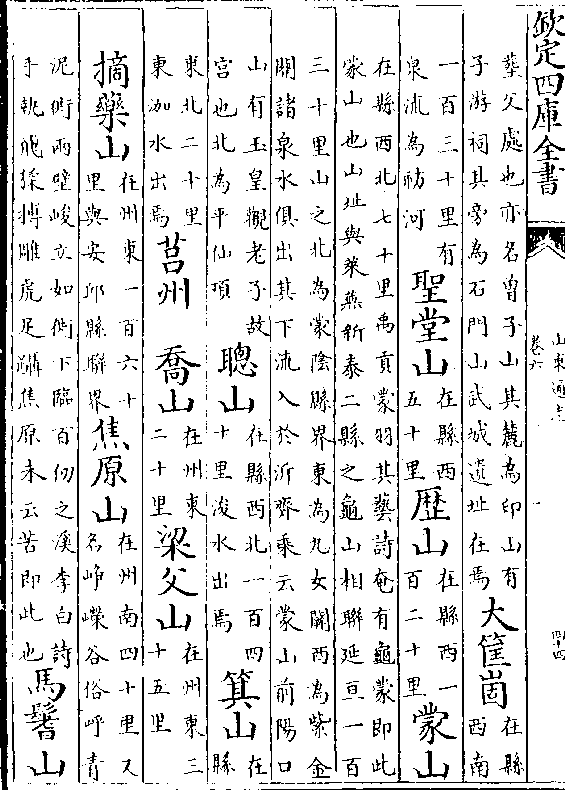 欽定四庫全書
山東通志
卷六
四十四
葬父處也亦名曾子山其麓為印山有
子游祠其旁為石門山武城遺址在焉
大筐崮
在縣
西南
一百三十里有
泉流為祊河
聖堂山
在縣西
五十里
歷山
在縣西一
百二十里
蒙山
在縣西北七十里禹貢蒙羽其藝詩奄有龜蒙即此
蒙山也山址與萊蕪新泰二縣之龜山相聯延亘一百
三十里山之北為蒙陰縣界東為九女關西為紫金
關諸泉水俱出其下流入於沂齊乘云蒙山前陽口
山有玉皇觀老子故
宮也北為平仙項
聰山
在縣西北一百四
十里浚水出焉
箕山
在
縣
東北二十里
東泇水出焉
莒州
喬山
在州東
二十里
梁父山
在州東三
十五里
摘藥山
在州東一百六十
里與安邱縣聯界
焦原山
在州南四十里又
名峥嶸谷俗呼青
泥衖兩壁峻立如衖下臨百仞之溪李白詩
手執飛猱搏雕虎足躡焦原未云苦即此也
馬鬐山